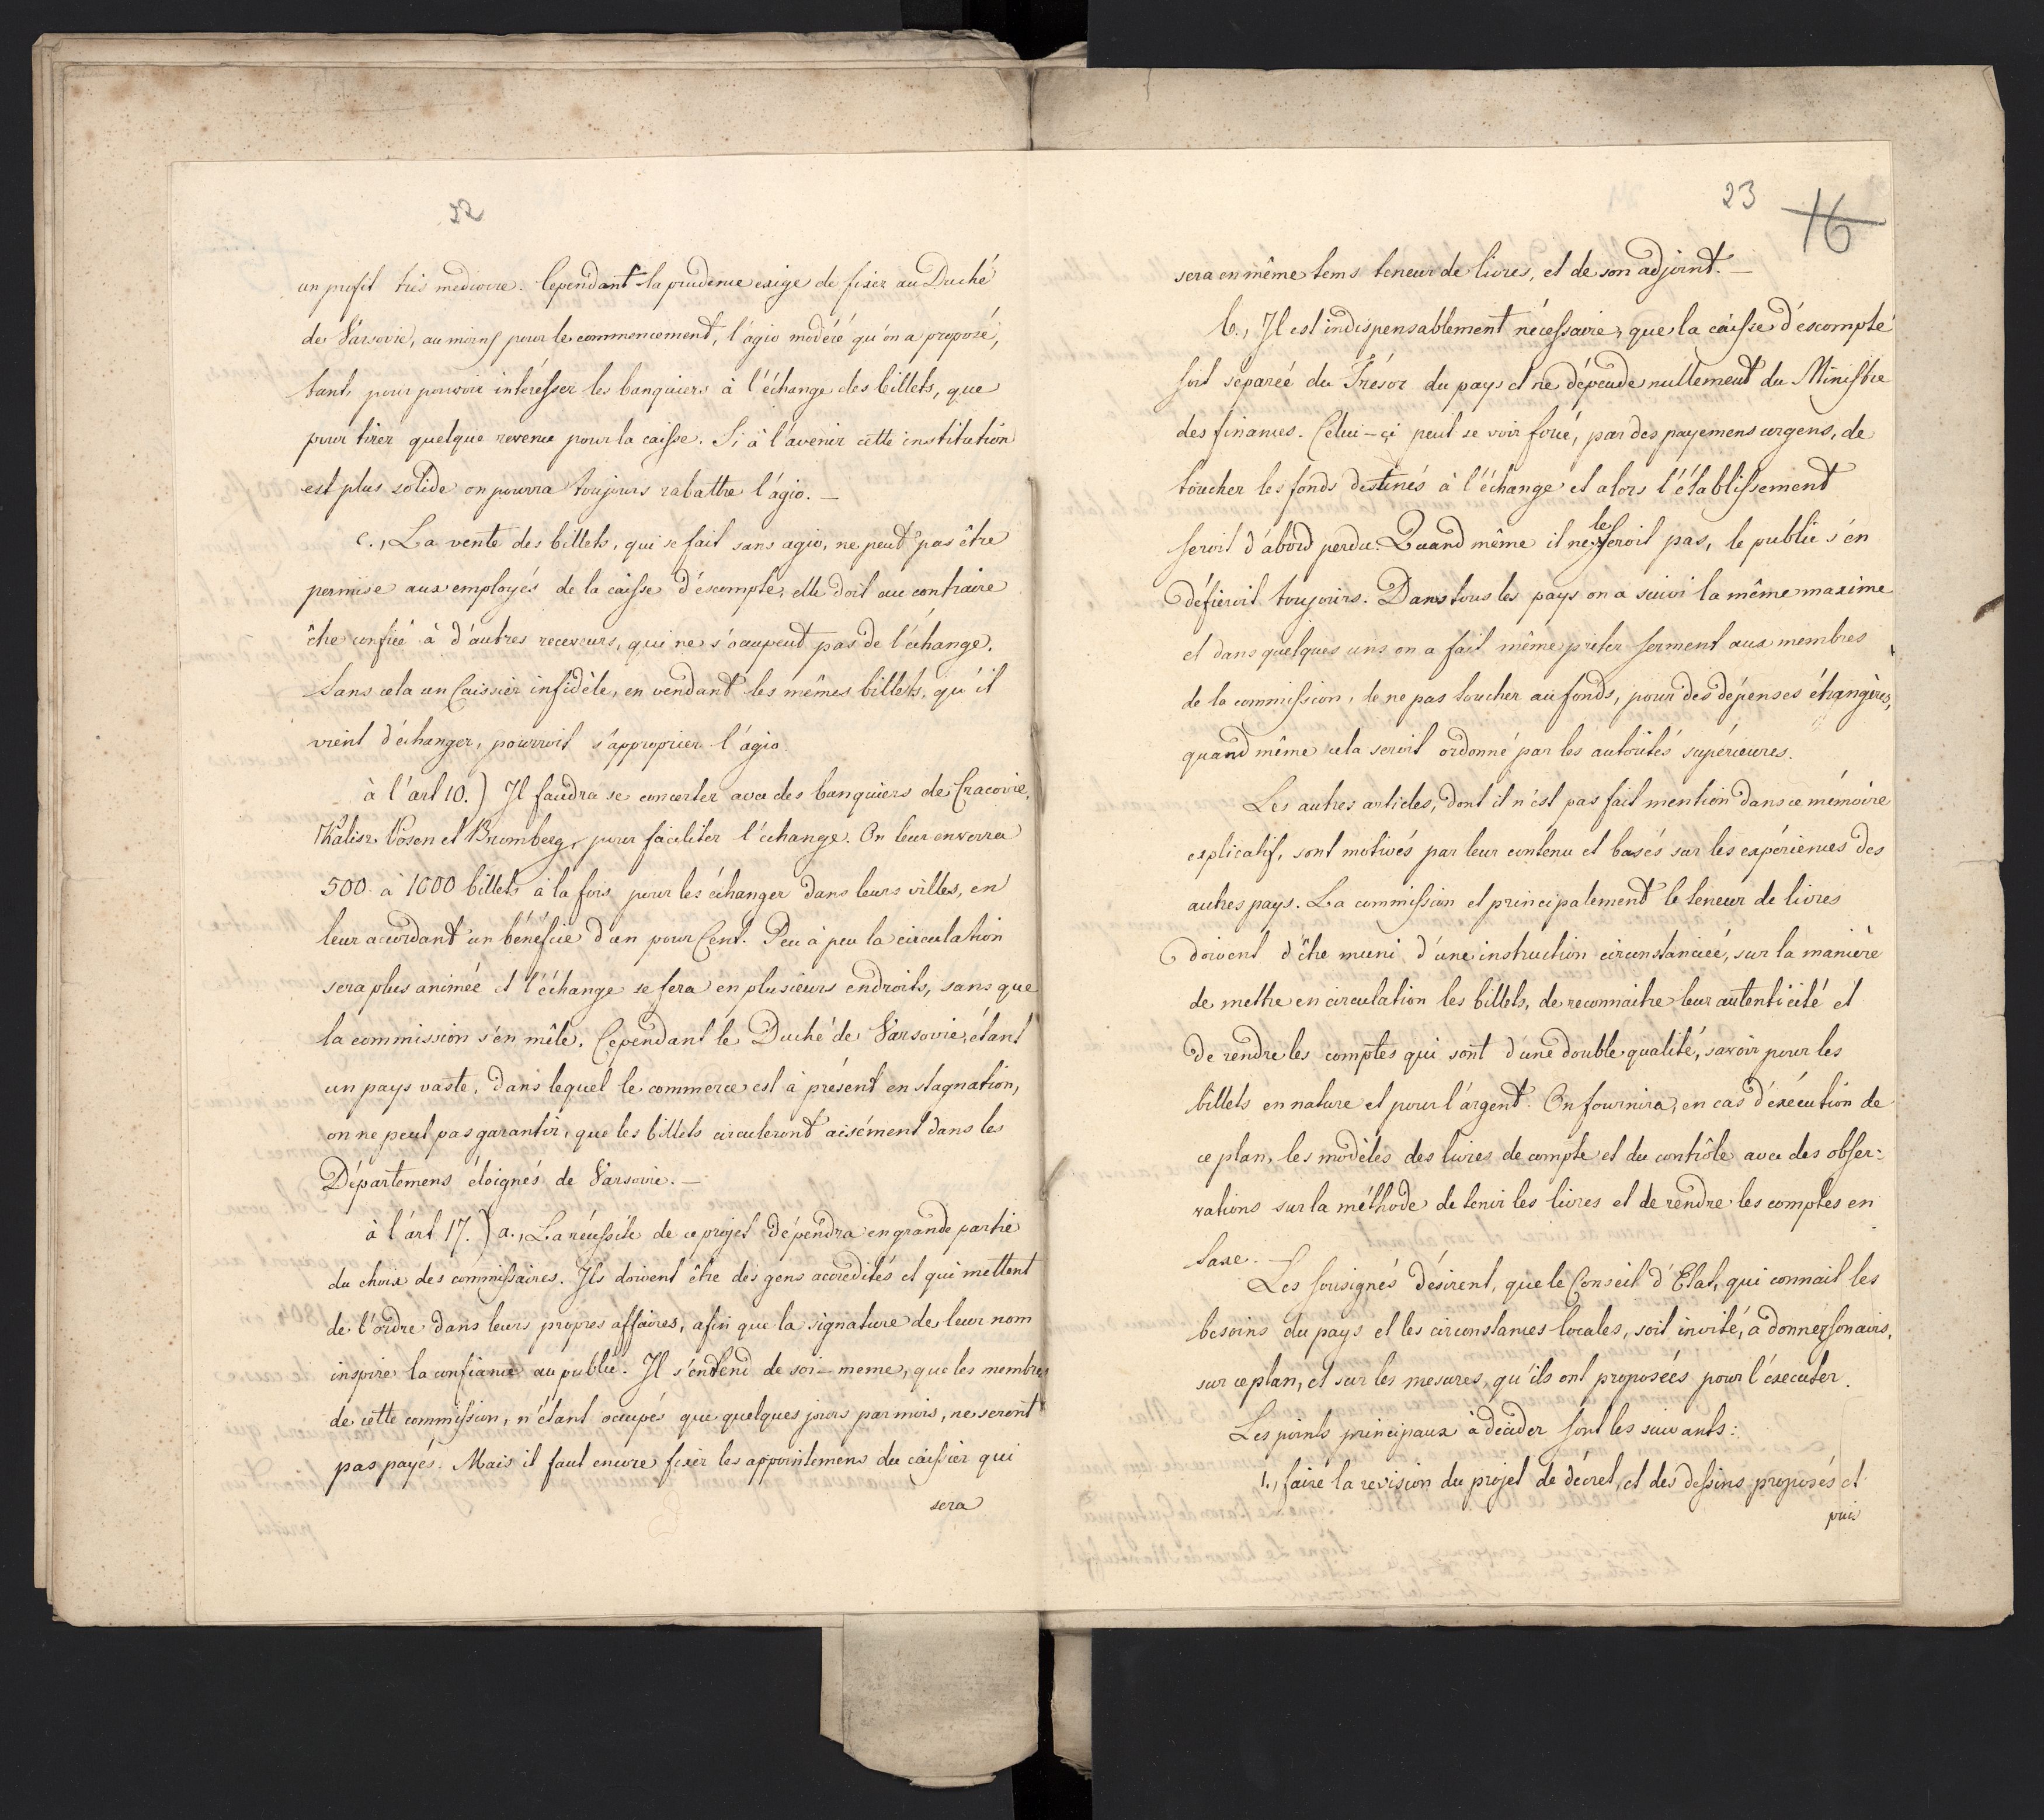 22
un profit très mediocre. Cependant la prudence exige de fixer au Duché
de Varsovie, au moins pour le commencement, l'agio modéré qu'on a proposé,
tant, pour pouvoir intéresser les banquiers à l'échange des billets, que
pour tirer quelque revenu pour la caisse. Si à l'avenir cette institution
est plus solide on pourra toujours rabattre l'agio. —
c., La vente des billets, qui se fait sans agio, ne peut pas être
permise aux employés de la caisse d'éscompte, elle doit au contraire
être confiée à d'autres receveurs, qui ne s'ocupent pas de l'échange.
Sans cela un Caissier infidèle, en vendant les mêmes billets, qu'il
vient d'échanger, pourroit s'approprier l'agio.
à l'art 10.) Il faudra se concerter avec des banquiers de Cracovie,
Kalisz, Posen et Bromberg, pour faciliter l'échange. On leur enverra
500 à 1000 billets à la fois pour les échanger dans leurs villes, en
leur acordant un bénéfice d'un pour Cent. Peu à peu la circulation
sera plus animée et l'échange se fera en plusieurs endroits, sans que
la commission s'en mêle. Cependant le Duché de Varsovie, étant
un pays vaste, dans lequel le commerce est à présent en stagnation,
on ne peut pas garantir, que les billets circuleront aisément dans les
Départemens éloignés de Varsovie. —
à l'art 17.) a., La réussite de ce projet dépendra en grande partie
du choix des commissaires. Ils doivent être des gens accredités et qui mettent
de l'ordre dans leurs propres affaires, afin que la signature de leur nom
inspire la confiance au public. Il s'entend de soi-meme, que les membres
de cette commission, n'étant occupés que quelques jours par mois, ne seront
pas payés. Mais il faut encore fixer les appointemens du caissier qui
sera
23
16
sera en même tems teneur de livres, et de son adjoint. —
b., Il est indispensablement nécessaire, que la caisse d'escompte
soit separée du Trésor du pays et ne dépende nullement du Ministre
des finances. Celui-çi peut se voir forcé, par des payemens urgens, de
toucher les fonds destinés à l'échange et alors l'établissement
seroit d'abord perdu. Quand même il ne le feroit pas, le public s'en
défieroit toujours. Dans tous les pays on a suivi la même maxime
et dans quelques uns on a fait même preter serment aux membres
de la commission, de ne pas toucher au fonds, pour des dépenses étrangères,
quand même cela seroit ordonné par les autorités supérieures.
Les autres articles, dont il n'est pas fait mention dans ce mémoire
explicatif, sont motivés par leur contenu et basés sur les expériences des
autres pays. La commission et principalement le teneur de livres
doivent d'être muni d'une instruction circonstanciée, sur la manière
de mettre en circulation les billets, de reconnaitre leur autenticité et
de rendre les comptes qui sont d'une double qualité, savoir pour les
billets en nature et pour l'argent. On fournira, en cas d'exécution de
ce plan, les modèles des livres de compte et du contrôle avec des obser:
vations sur la méthode de tenir les livres et de rendre les comptes en
Saxe. —
Les sousignés désirent, que le Conseil d'Etat, qui connait les
besoins du pays et les circonstances locales, soit invité, à donner son avis,
sur ce plan, et sur les mesures, qu'ils ont proposées pour l'éxecuter.
Les points principaux à décider sont les suivants:
1., faire la revision du projet de décret, et des dessins proposés et
puis